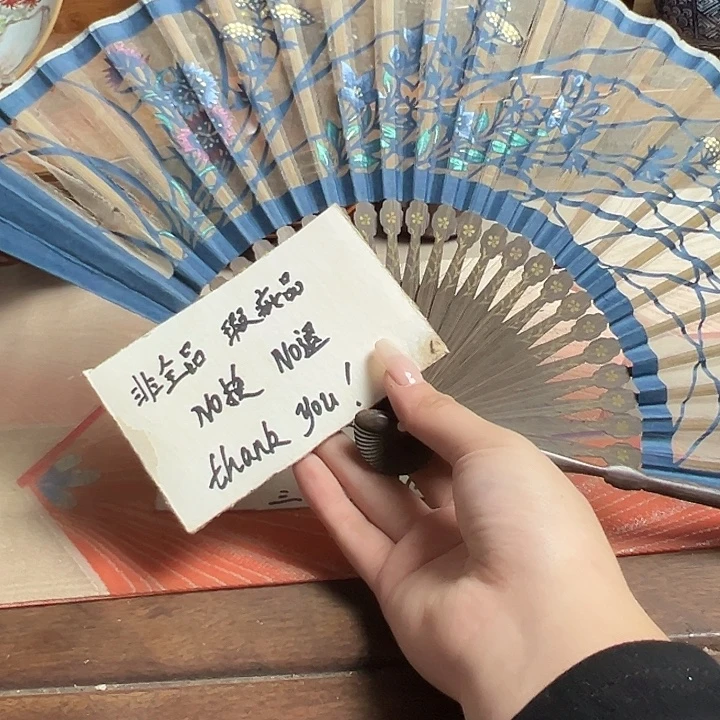 非全品 瑕疵品
NO换 NO退
thank you!
三